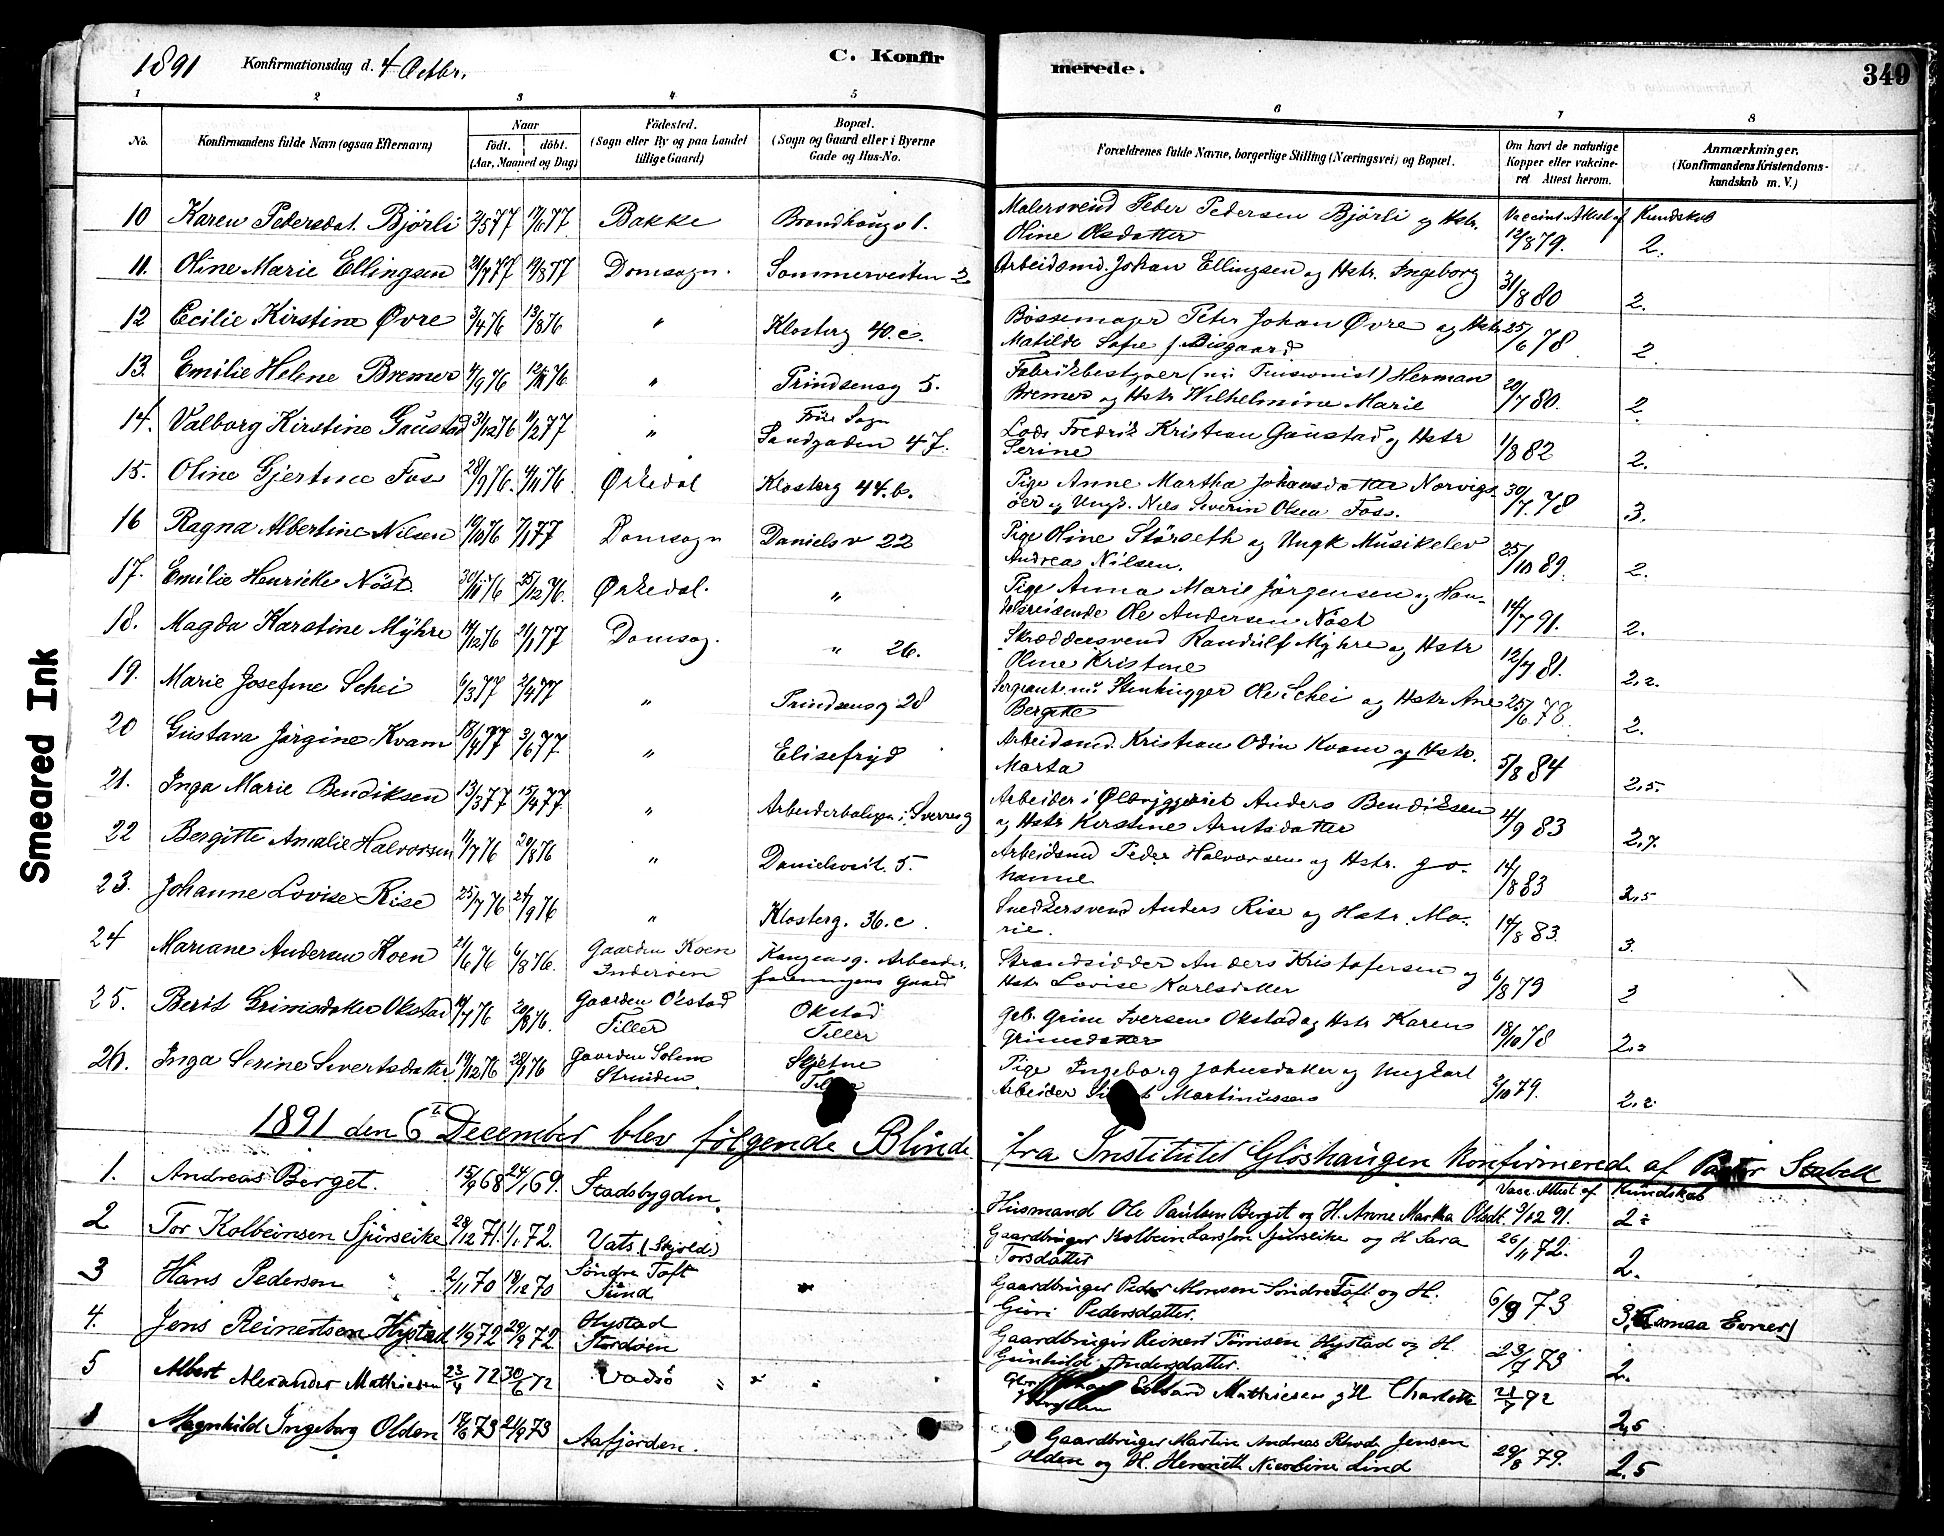 1891 Konfirmationsdag d. 4 Octbr. C. Konfirmerede. 349
1 2 3 4 5 6 7 8
No. Konfirmandens fulde Navn (ogsaa Efternavn) Naar født. døbt. (Aar, Maaned og Dag) Fødested. (Sogn eller By og paa Landet tillige Gaard) Bopæl. (Sogn og Gaard eller i Byerne Gade og Hus-No.
Forældrenes fulde Navne, borgerlige Stilling (Næringsvei) og Bopæl. Om havt de naturlige Kopper eller vaccineret Attest herom. Anmærkninger. (Konfirmandens Kristendomskundskab m. V.)
10 Karen Pedersdat. Bjørli 2/5 77 17/6 77 Bakke Brandhaugv 1. Malersvend Peder Pedersen Bjørli og Hstr. Vaccine Attest af Kundskab
Oline Olsdatter 12/8 79. 2.
11. Oline Marie Ellingsen 21/7 77 19/8 77 Domsogn. Sommerveiten 2 Arbeidsmd. Johan Ellingsen og Hstr. Ingeborg 31/8 80 2.
12 Ecilie Kirstine Øvre 3/4 76 13/8 76 " Klosterg 40.c. Bøssemager Peter Johan Øvre og Hstr 25/6 78
Matilde Sofie f. Bisgaard 2
13. Emilie Helene Bremer 4/9 76 12/11 76 " Prindsensg 5. Fabrikbestyrer (nu Pensionist) Herman
Bremer og Hstr Wilhelmine Marie 20/7 80. 2.
14. Valborg Kirstine Gaustad 31/12 76 11/2 77 " Frue Sogn Sandgaden 47. Lods Fredrik Kristian Gaustad og Hstr
Serine 1/8 82 2.
15. Oline Gjertine Foss 28/9 76. 4/11 76 Ørkedal Klosterg 44.b. Pige Anne Martha Johansdatter Norvigs
øer og Ungk. Nils Severin Olsen Foss. 30/7. 78 3.
16 Ragna Albertine Nilsen 19/10 76 7/1 77 Domsogn Danielsv 22 Pige Oline Størseth og Ungk Musikelev
Andreas Nilsen. 25/10 89. 2.
17. Emilie Henrikke Nøst. 30/11 76 25/12 76. Ørkedal. " Pige Anna Marie Jørgensen og Han-
delsreisende Ole Andersen Nøst 14/7 91. 2.
18. Magda Karstine Myhre 14/12 76 21/1 77 Domsog. " 26. Skræddersvend Randulf Myhre og Hstr
Oline Kristine 12/7 81. 2,2.
19. Marie Josefine Schei 6/3 77 2/4 77 " Prindsensg 28 Sergeant nu Stenhugger Ole Schei og Hstr Ane
Bergitte 25/6 78. 2.
20 Gustava Jørgine Kvam 18/4 77 3/6 77 " Elisefryd Arbeidsmd. Kristian Odin Kvam og Hstr.
Marta 5/8 84 2,5.
21. Inga Marie Bendiksen 13/3 77 15/4 77. " Arbeiderboligen i Sverresg Arbeider i Ølbryggeriet Anders Bendiksen
og Hstr Kirstine Arntsdatter 4/9 83 2,7.
22 Bergitte Amalie Halvorsen 11/7 76 20/8 76 " Danielsveit. 5. Arbeidsmd Peder Halvorsen og Hstr. Jo-
hanne 14/8 83 2,5
23. Johanne Lovise Rise 25/7 76 24/9 76 " Klosterg. 36.c. Snedkersvend Anders Rise og Hstr. Ma-
rie. 14/8 83. 3.
24 Mariane Andersen Koen 21/6 76 6/8 76. Gaarden Koen Inderøen Kongensg. Arbeider-
foreningens Gaard Strandsidder Anders Kristofersen og
Hstr Lovise Karlsdatter 6/8 79 2
25. Berit Grimsdatter Okstad 14/7 76 20/8 76. Gaarden Okstad Tiller Okstad Tiller Gbr. Grim Iversen Okstad og Hstr Karen
Grimsdatter 18/10 78 2,2
26. Inga Serine Sivertsdatter 19/12 76 Gaarden Solem Strinden. Skjetne Pige Ingeborg Johnsdatter og
Arbeider Martinussen 9/10 79. 2,2
1891 den 6te December blev følgende Blinde fra Institutet Gløshaugen Konfirmerede af Pastor Stabell
1. Andreas Berget. 15/9 68 24/1 69. Stadsbygden Vacc. Attest af Kundskab
Husmand Ole Paulsen Berget og H. Anne Martha Olsdt. 9/12 91. 2
2 Tor Kolbeinsen Spürseike 28/12 71. 1/1 72. Vats (Skjold) Gaardbruger Kolbein Larsson Spürseike og H Sara
Torsdatter 26/11 72. 2.
3 Hans Pedersen 2/11 70 18/12 70 Søndre Toft Sund Gaardbruger Peder Monsen Søndre Toft og H.
Guri Pedersdatter. 6/9 73 3, (smaa Evner)
4. Jens Reinertsen Hystad 1/9 72 29/9 72 Hystad Stordøen Gaardbruger Reinert Tørrisen Hystad og H.
Gunhild Andersdatter. 23/7 73 2.
5 Albert Alexander Mathiesen 23/4 72 30/6 72 Vadsø Edvard Mathiesen og H Charlotte
2,5
1 Magnhild Ingeborg Olden 18/6 73 21/9 73 Aafjorden. Gaardbruger Martin Andreas Rhode Jensen
Olden og H. Henriette Nicoline Lind 29/8 79. 2,5
Smeared Ink